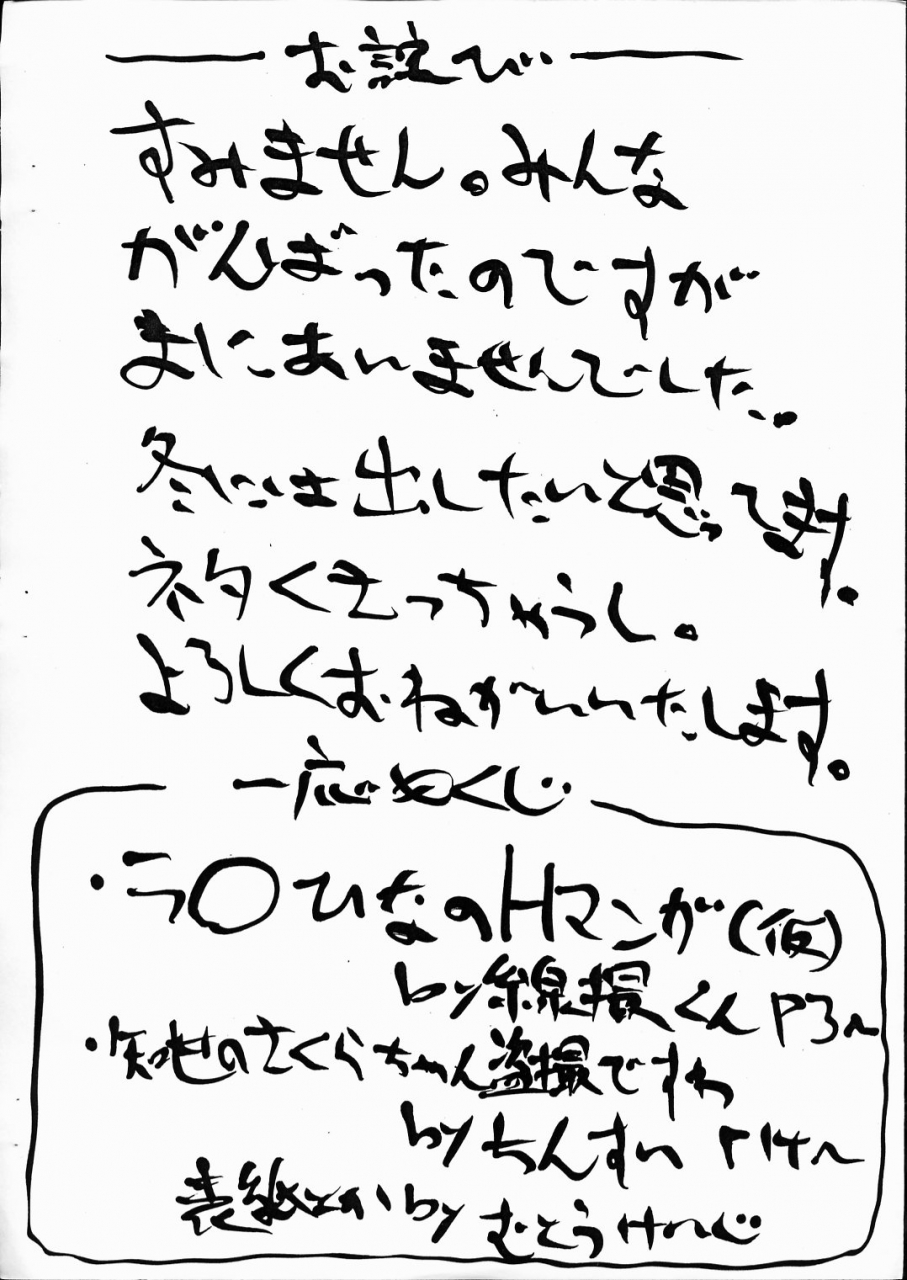 お詫び
すみません。みんな
がんばったのですが
まにあいませんでした。
冬には出したいと思ってます。
ネタくさっちゃうし。
よろしくおねがいいたします。
一応もくじ
・ラ○ひなのHマンガ(仮)
by線撮くん P3〜
・知世のさくらちゃん盗撮ですわ
by ちんすい P14〜
表紙とか by むとうけーじ